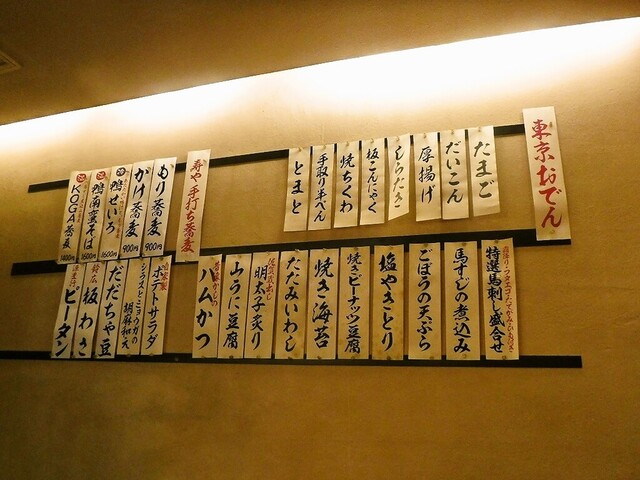 東京おでん
たまご
だいこん
厚揚げ
しらたき
板こんにゃく
焼ちくわ
手取り半ぺん
とまと
寿や手打ち蕎麦
もり蕎麦 900円
かけ蕎麦 900円
鴨せいろ 1600円
鴨南蛮そば 1600円
KOGA蕎麦 1400円
特選馬刺し盛合せ
馬すじの煮込み
ごぼうの天ぷら
塩やきとり
焼きピーナッツ豆腐
焼き海苔
たたみいわし
明太子炙り
山うに豆腐
ハムかつ
ポテトサラダ
シラスとミョウガの胡麻和え
だだちゃ豆
板わさ
ピータン